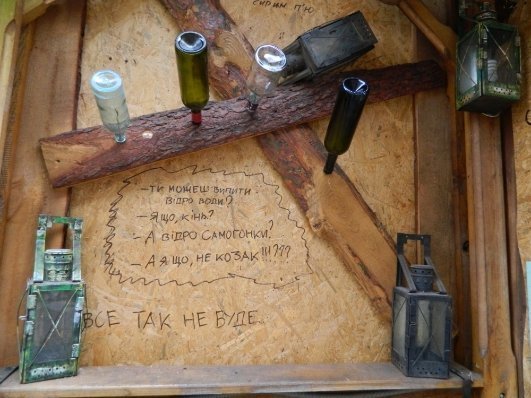 СИРИМ П'Ю
– ТИ МОЖЕШ ВИПИТИ
ВІДРО ВОДИ?
– Я ЩО, КІНЬ?
– А ВІДРО САМОГОНКИ?
– А Я ЩО, НЕ КОЗАК!!!???
ВСЕ ТАК НЕ БУДЕ